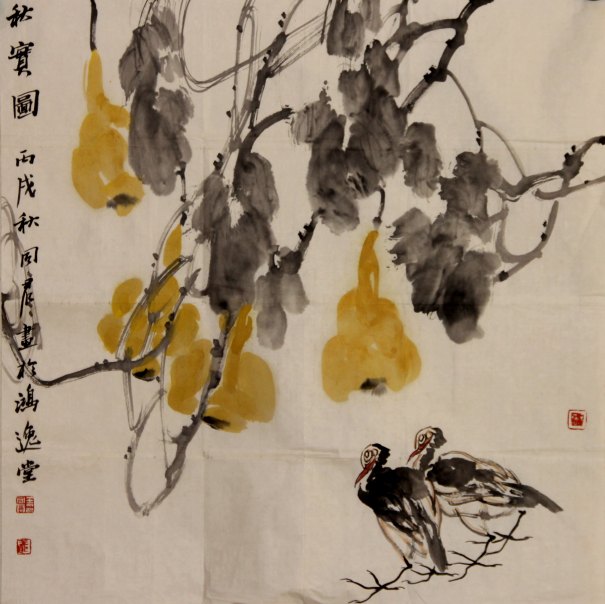 秋實圖
丙戌秋周君畫於鴻逸堂